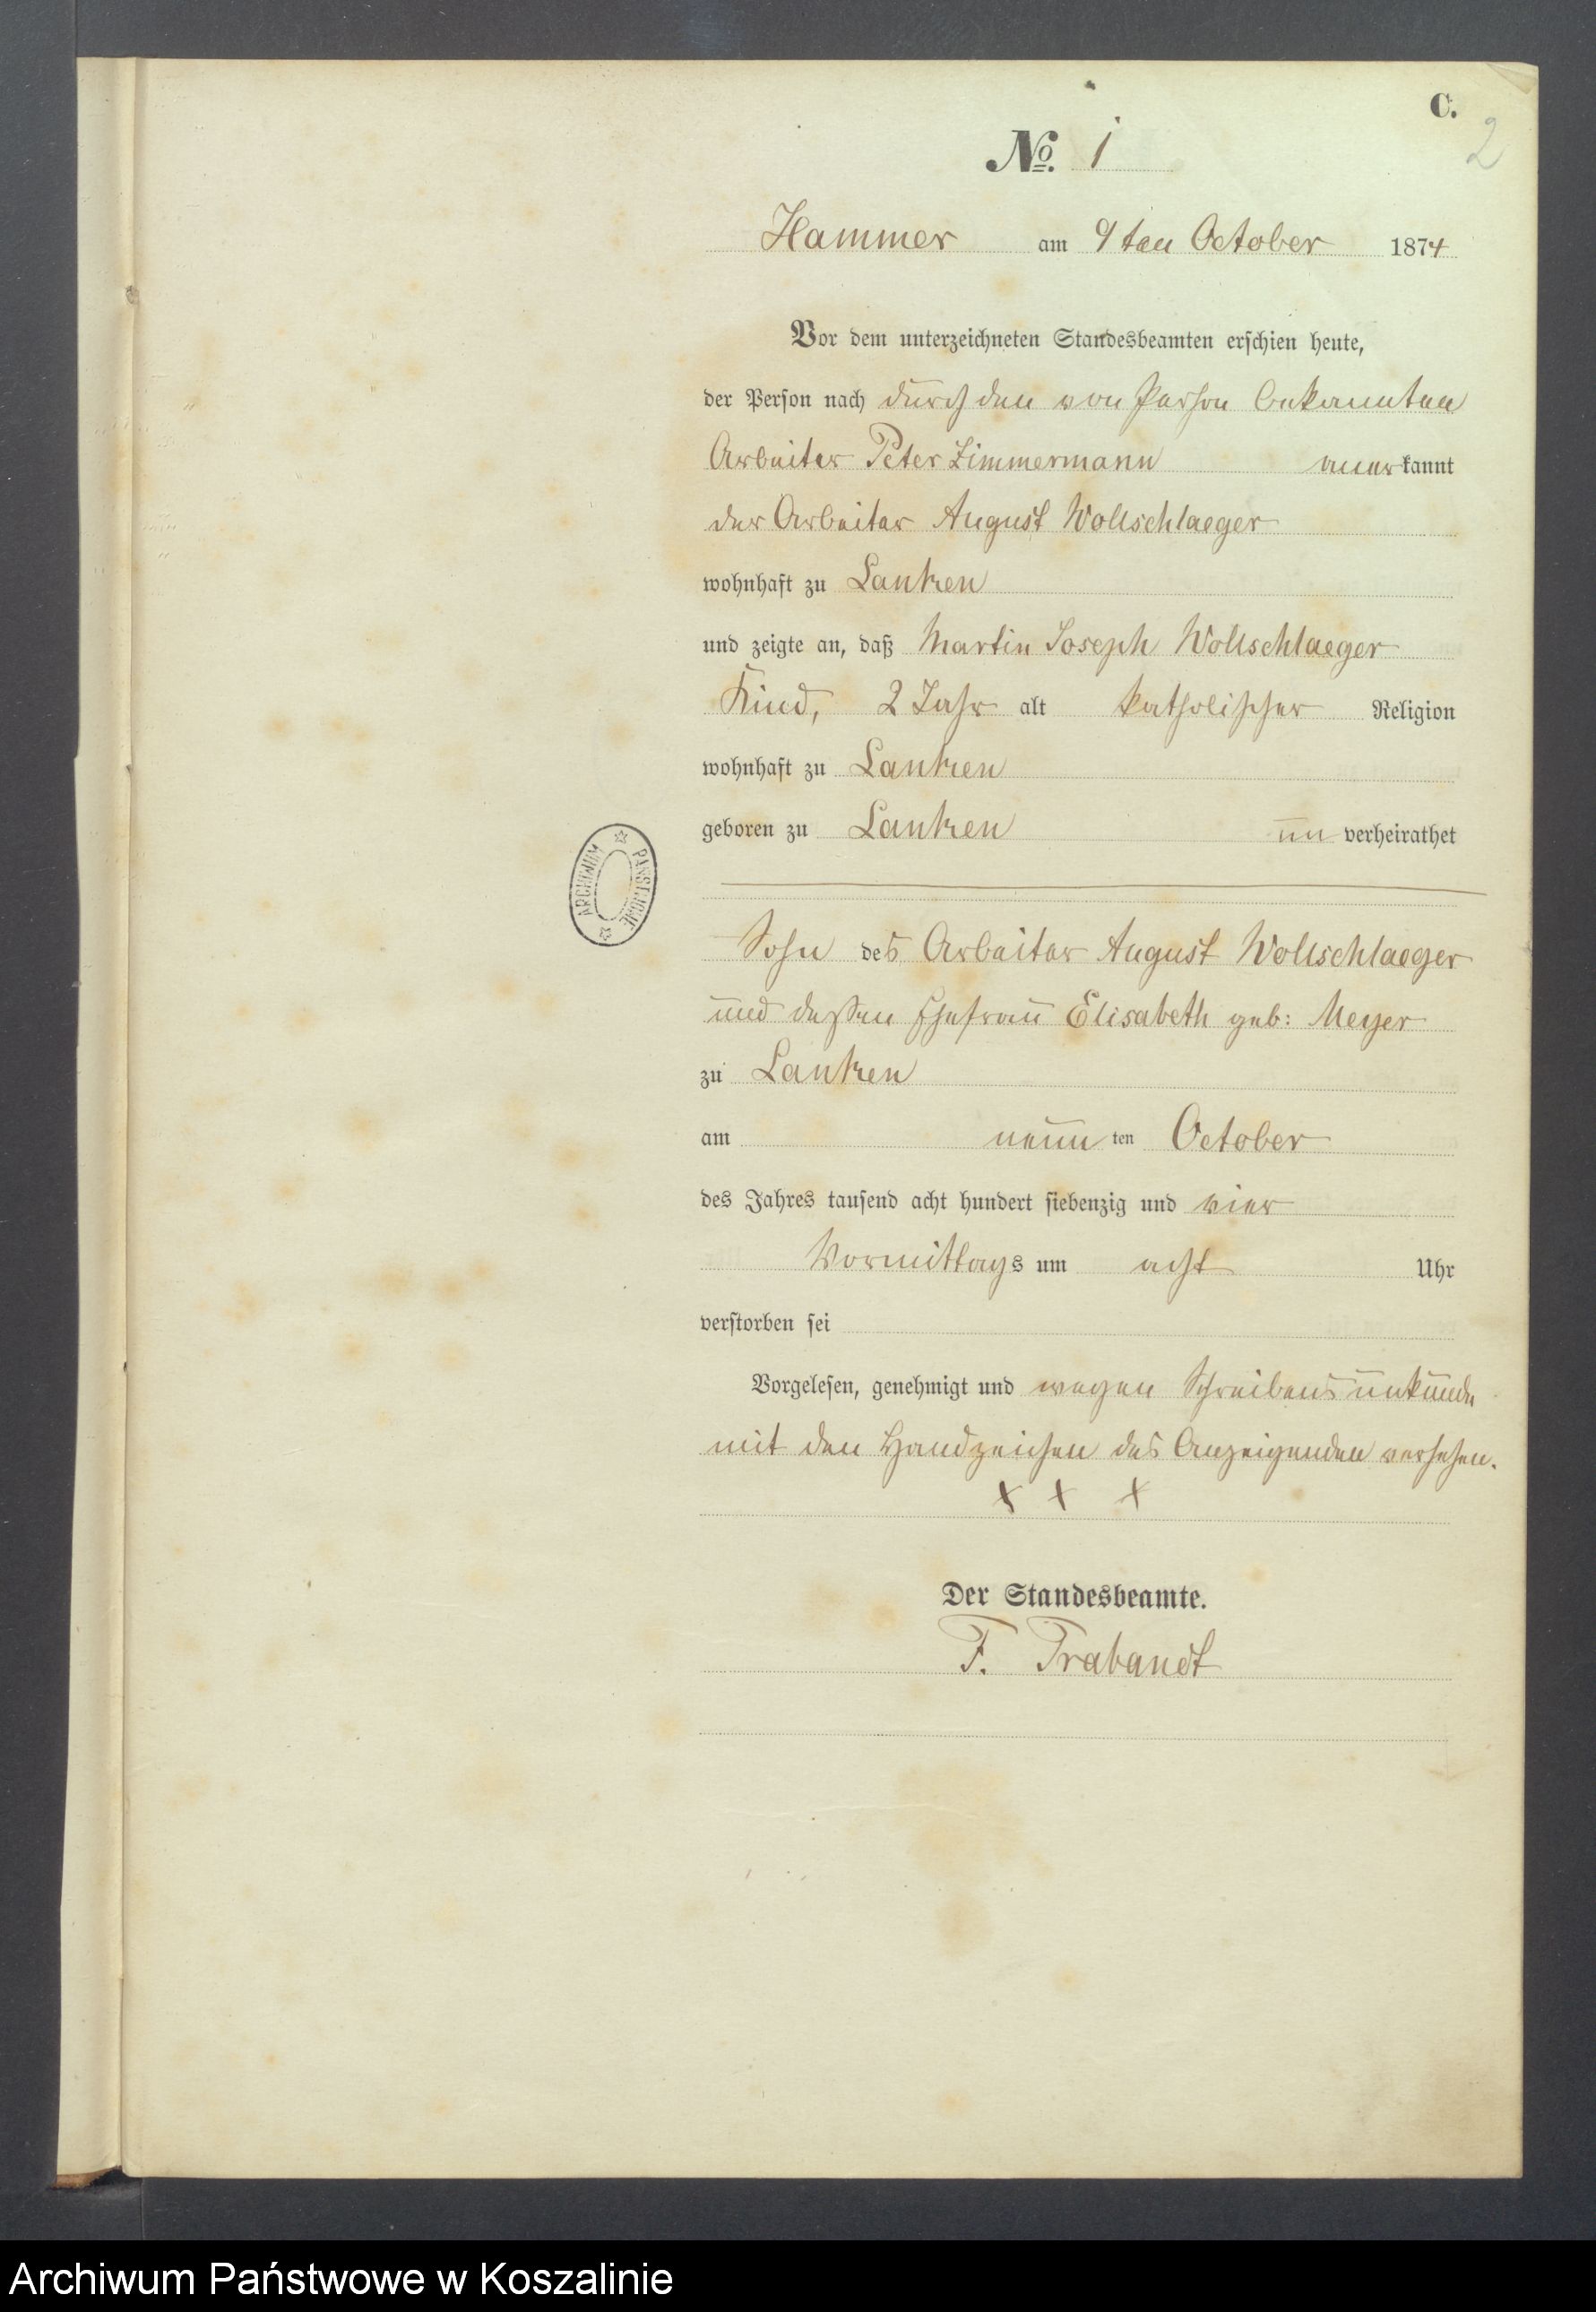 C.
2
No. 1
Hammer am 9ten October 1874
Vor dem unterzeichneten Standesbeamten erschien heute,
der Person nach durch den von Person bekannten
Arbeiter Peter Zimmermann anerkannt
der Arbeiter August Wollschlaeger
wohnhaft zu Lanken
und zeigte an, daß Martin Joseph Wollschlaeger
Kind, 2 Jahr alt katholischer Religion
wohnhaft zu Lanken
geboren zu Lanken unverheirathet
Sohn des Arbeiter August Wollschlaeger
und dessen Ehefrau Elisabeth geb: Meyer
zu Lanken
am neunten October
des Jahres tausend acht hundert siebenzig und vier
Vormittags um acht Uhr
verstorben sei
Vorgelesen, genehmigt und wegen Schreibensunkunde
mit den Handzeichen des Anzeigenden versehen.
x x x
Der Standesbeamte.
F. Trabandt
ARCHIWUM PAŃSTWOWE
Archiwum Państwowe w Koszalinie